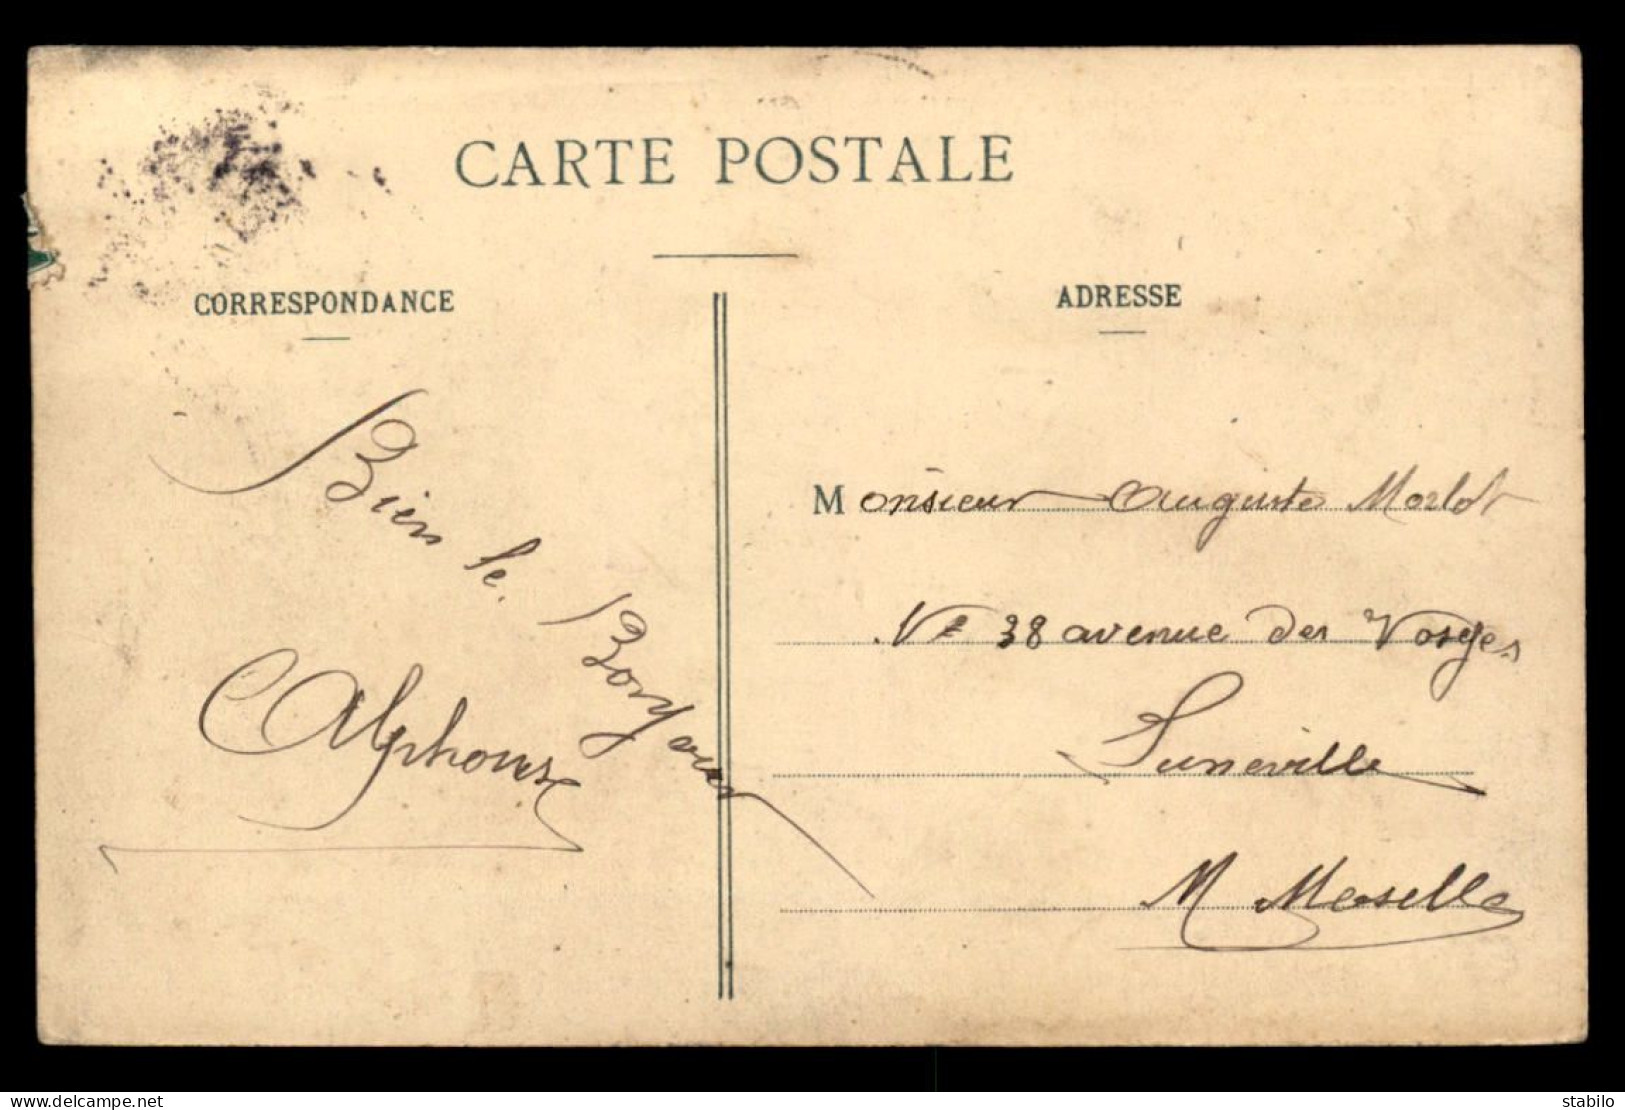 CARTE POSTALE
CORRESPONDANCE
ADRESSE
Bien le Bonjour
Alphonse
Monsieur Auguste Morlot
N° 38 avenue des Vosges
Luneville
M Moselle
www.delcampe.net
stabilo